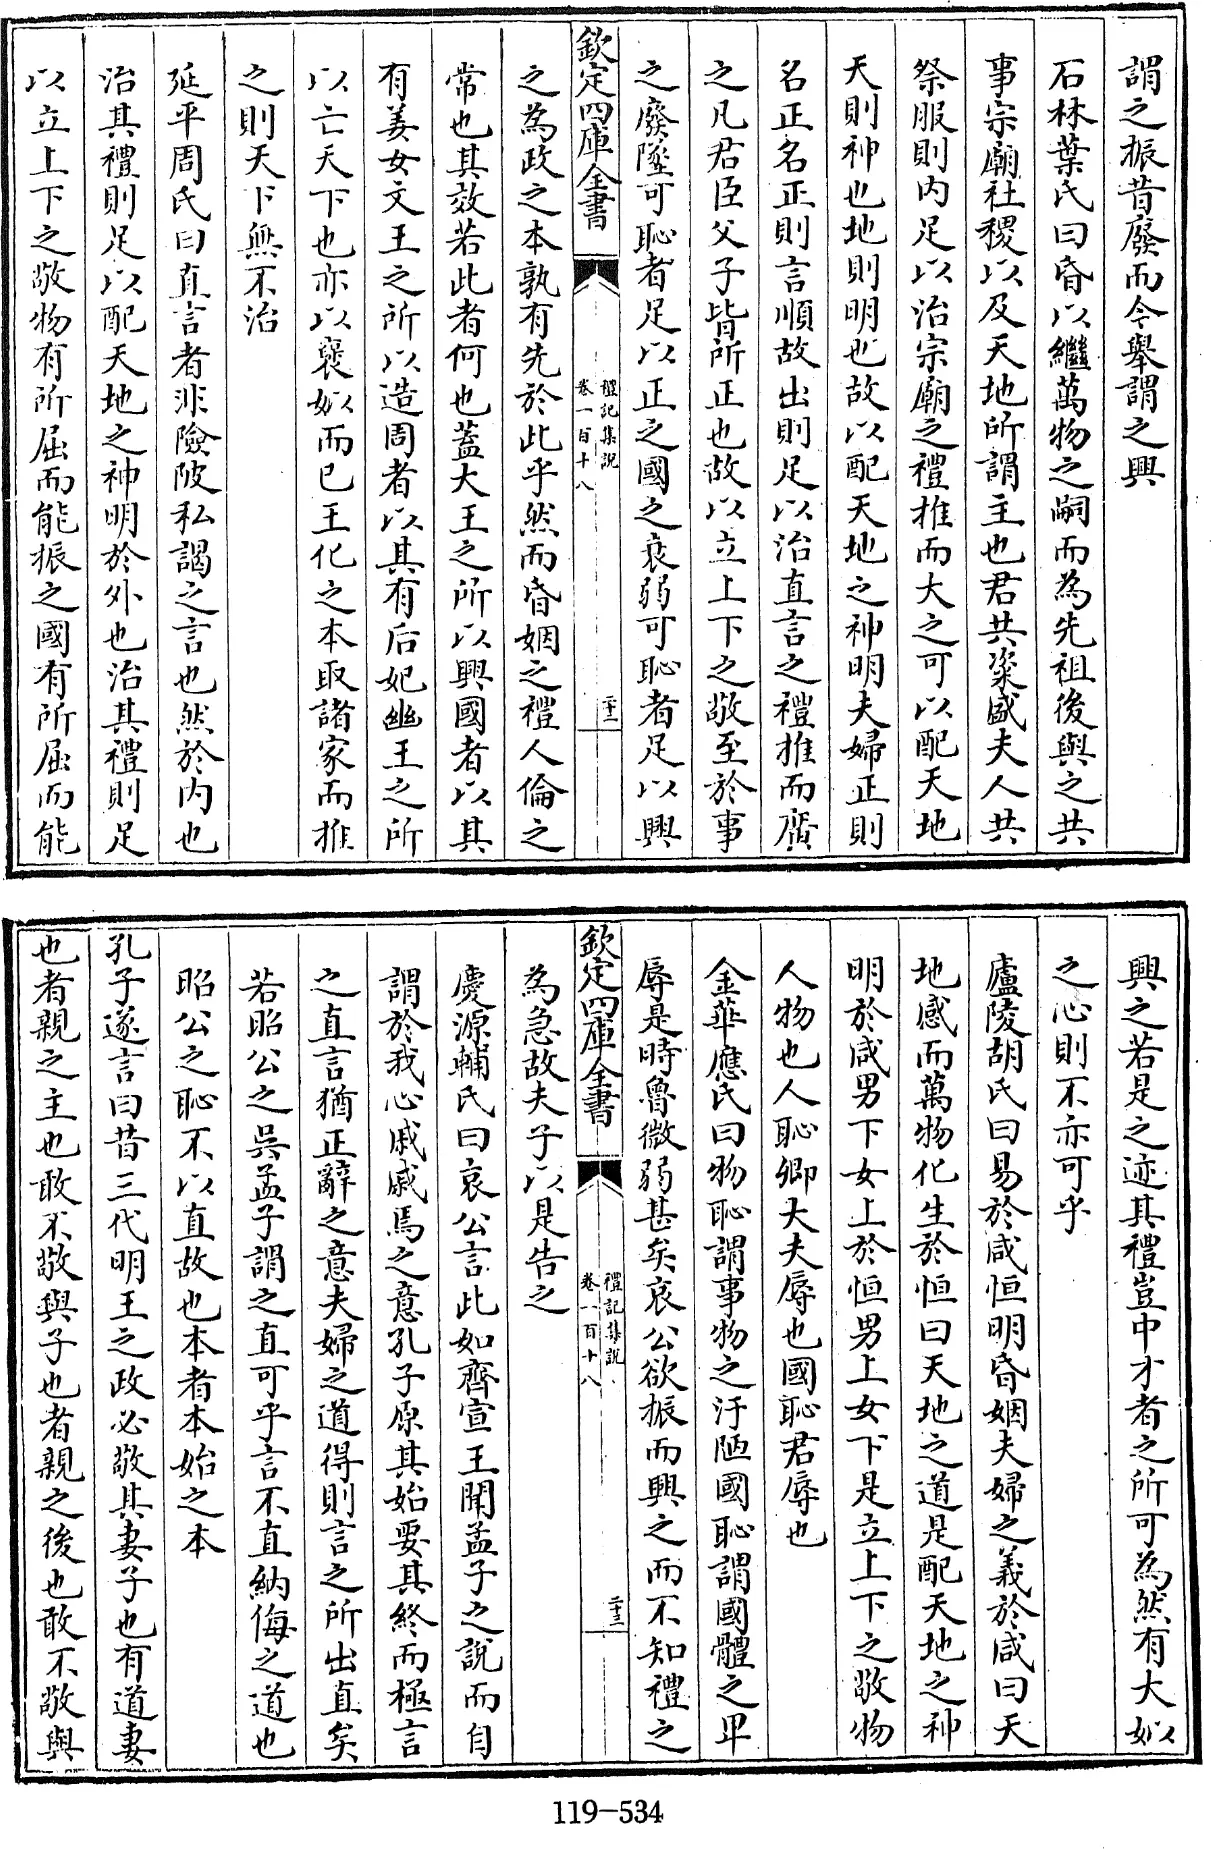 謂之振昔廢而今舉謂之興
石林葉氏曰昏以繼萬物之嗣而為先祖後與之共
事宗廟社稷以及天地所謂主也君共粢盛夫人共
祭服則内足以治宗廟之禮推而大之可以配天地
天則神也地則明也故以配天地之神明夫婦正則
名正名正則言順故出則足以治直言之禮推而廣
之凡君臣父子皆所正也故以立上下之敬至於事
之廢墜可恥者足以正之國之衰弱可恥者足以興
欽定四庫全書
禮記集說
卷一百十八
二十二
之為政之本孰有先於此乎然而昏姻之禮人倫之
常也其效若此者何也蓋大王之所以興國者以其
有姜女文王之所以造周者以其有后妃幽王之所
以亡天下也亦以襃姒而已王化之本取諸家而推
之則天下無不治
延平周氏曰直言者非險陂私謁之言也然於内也
治其禮則足以配天地之神明於外也治其禮則足
以立上下之敬物有所屈而能振之國有所屈而能
興之若是之迹其禮豈中才者之所可為然有大姒
之心則不亦可乎
廬陵胡氏曰易於咸恒明昏姻夫婦之義於咸曰天
地感而萬物化生於恒曰天地之道是配天地之神
明於咸男下女上於恒男上女下是立上下之敬物
人物也人恥卿大夫辱也國恥君辱也
金華應氏曰物恥謂事物之汙陋國恥謂國體之卑
辱是時魯微弱甚矣哀公欲振而興之而不知禮之
欽定四庫全書
禮記集說
卷一百十八
二十三
為急故夫子以是告之
慶源輔氏曰哀公言此如齊宣王聞孟子之說而自
謂於我心戚戚焉之意孔子原其始要其終而極言
之直言猶正辭之意夫婦之道得則言之所出直矣
若昭公之吳孟子謂之直可乎言不直納侮之道也
昭公之恥不以直故也本者本始之本
孔子遂言曰昔三代明王之政必敬其妻子也有道妻
也者親之主也敢不敬與子也者親之後也敢不敬與
119-534